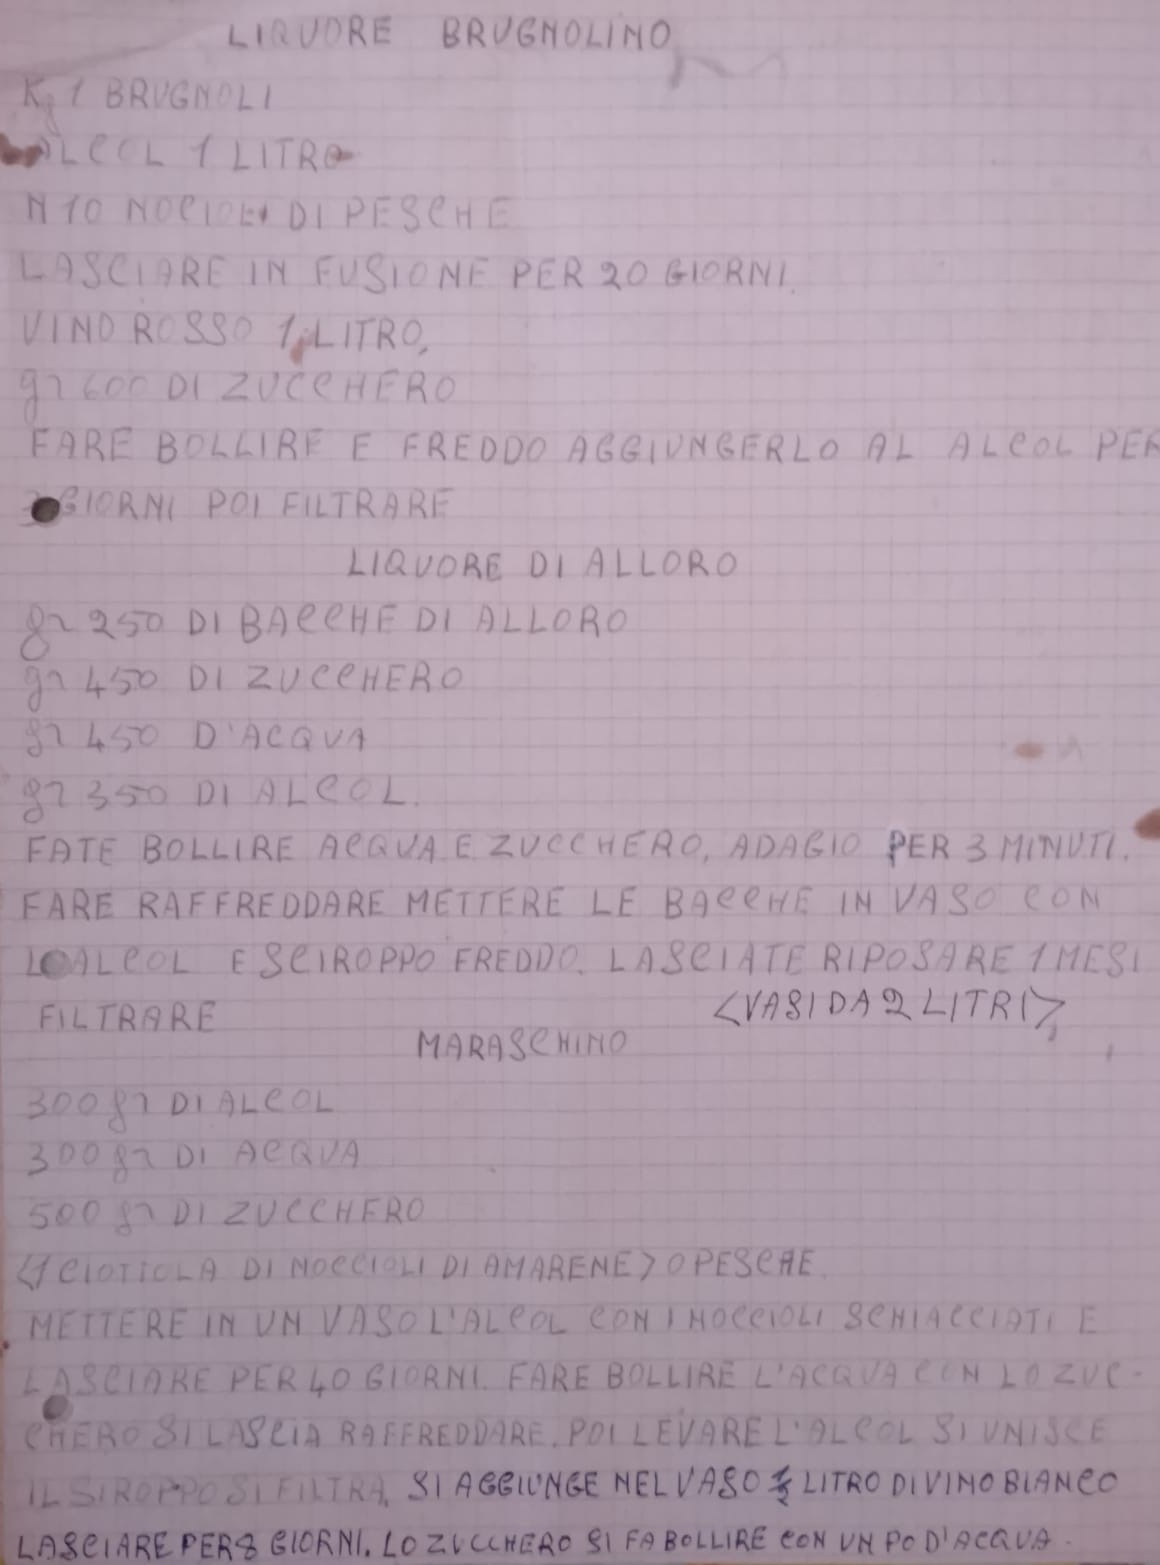 LIQUORE BRUGNOLINO
Kg 1 BRUGNOLI
ALCOL 1 LITRO
N 10 NOCIOLI DI PESCHE
LASCIARE IN FUSIONE PER 20 GIORNI.
VINO ROSSO 1 LITRO,
gr 600 DI ZUCCHERO
FARE BOLLIRE E FREDDO AGGIUNGERLO AL ALCOL PER
GIORNI POI FILTRARE
LIQUORE DI ALLORO
gr 250 DI BACCHE DI ALLORO
gr 450 DI ZUCCHERO
gr 450 D'ACQUA
gr 350 DI ALCOL.
FATE BOLLIRE ACQUA E ZUCCHERO, ADAGIO PER 3 MINUTI.
FARE RAFFREDDARE METTERE LE BACCHE IN VASO CON
LO ALCOL E SCIROPPO FREDDO. LASCIATE RIPOSARE 1 MESI
FILTRARE <VASI DA 2 LITRI>
MARASCHINO
300 gr DI ALCOL
300 gr DI ACQUA
500 gr DI ZUCCHERO
<1 CIOTTOLA DI NOCCIOLI DI AMARENE> O PESCHE.
METTERE IN UN VASO L'ALCOL CON I NOCCIOLI SCHIACCIATI E
LASCIARE PER 40 GIORNI. FARE BOLLIRE L'ACQUA CON LO ZUC-
CHERO SI LASCIA RAFFREDDARE. POI LEVARE L'ALCOL SI UNISCE
IL SIROPPO SI FILTRA. SI AGGIUNGE NEL VASO LITRO DI VINO BIANCO
LASCIARE PER 8 GIORNI. LO ZUCCHERO SI FA BOLLIRE CON UN PO D'ACQUA.